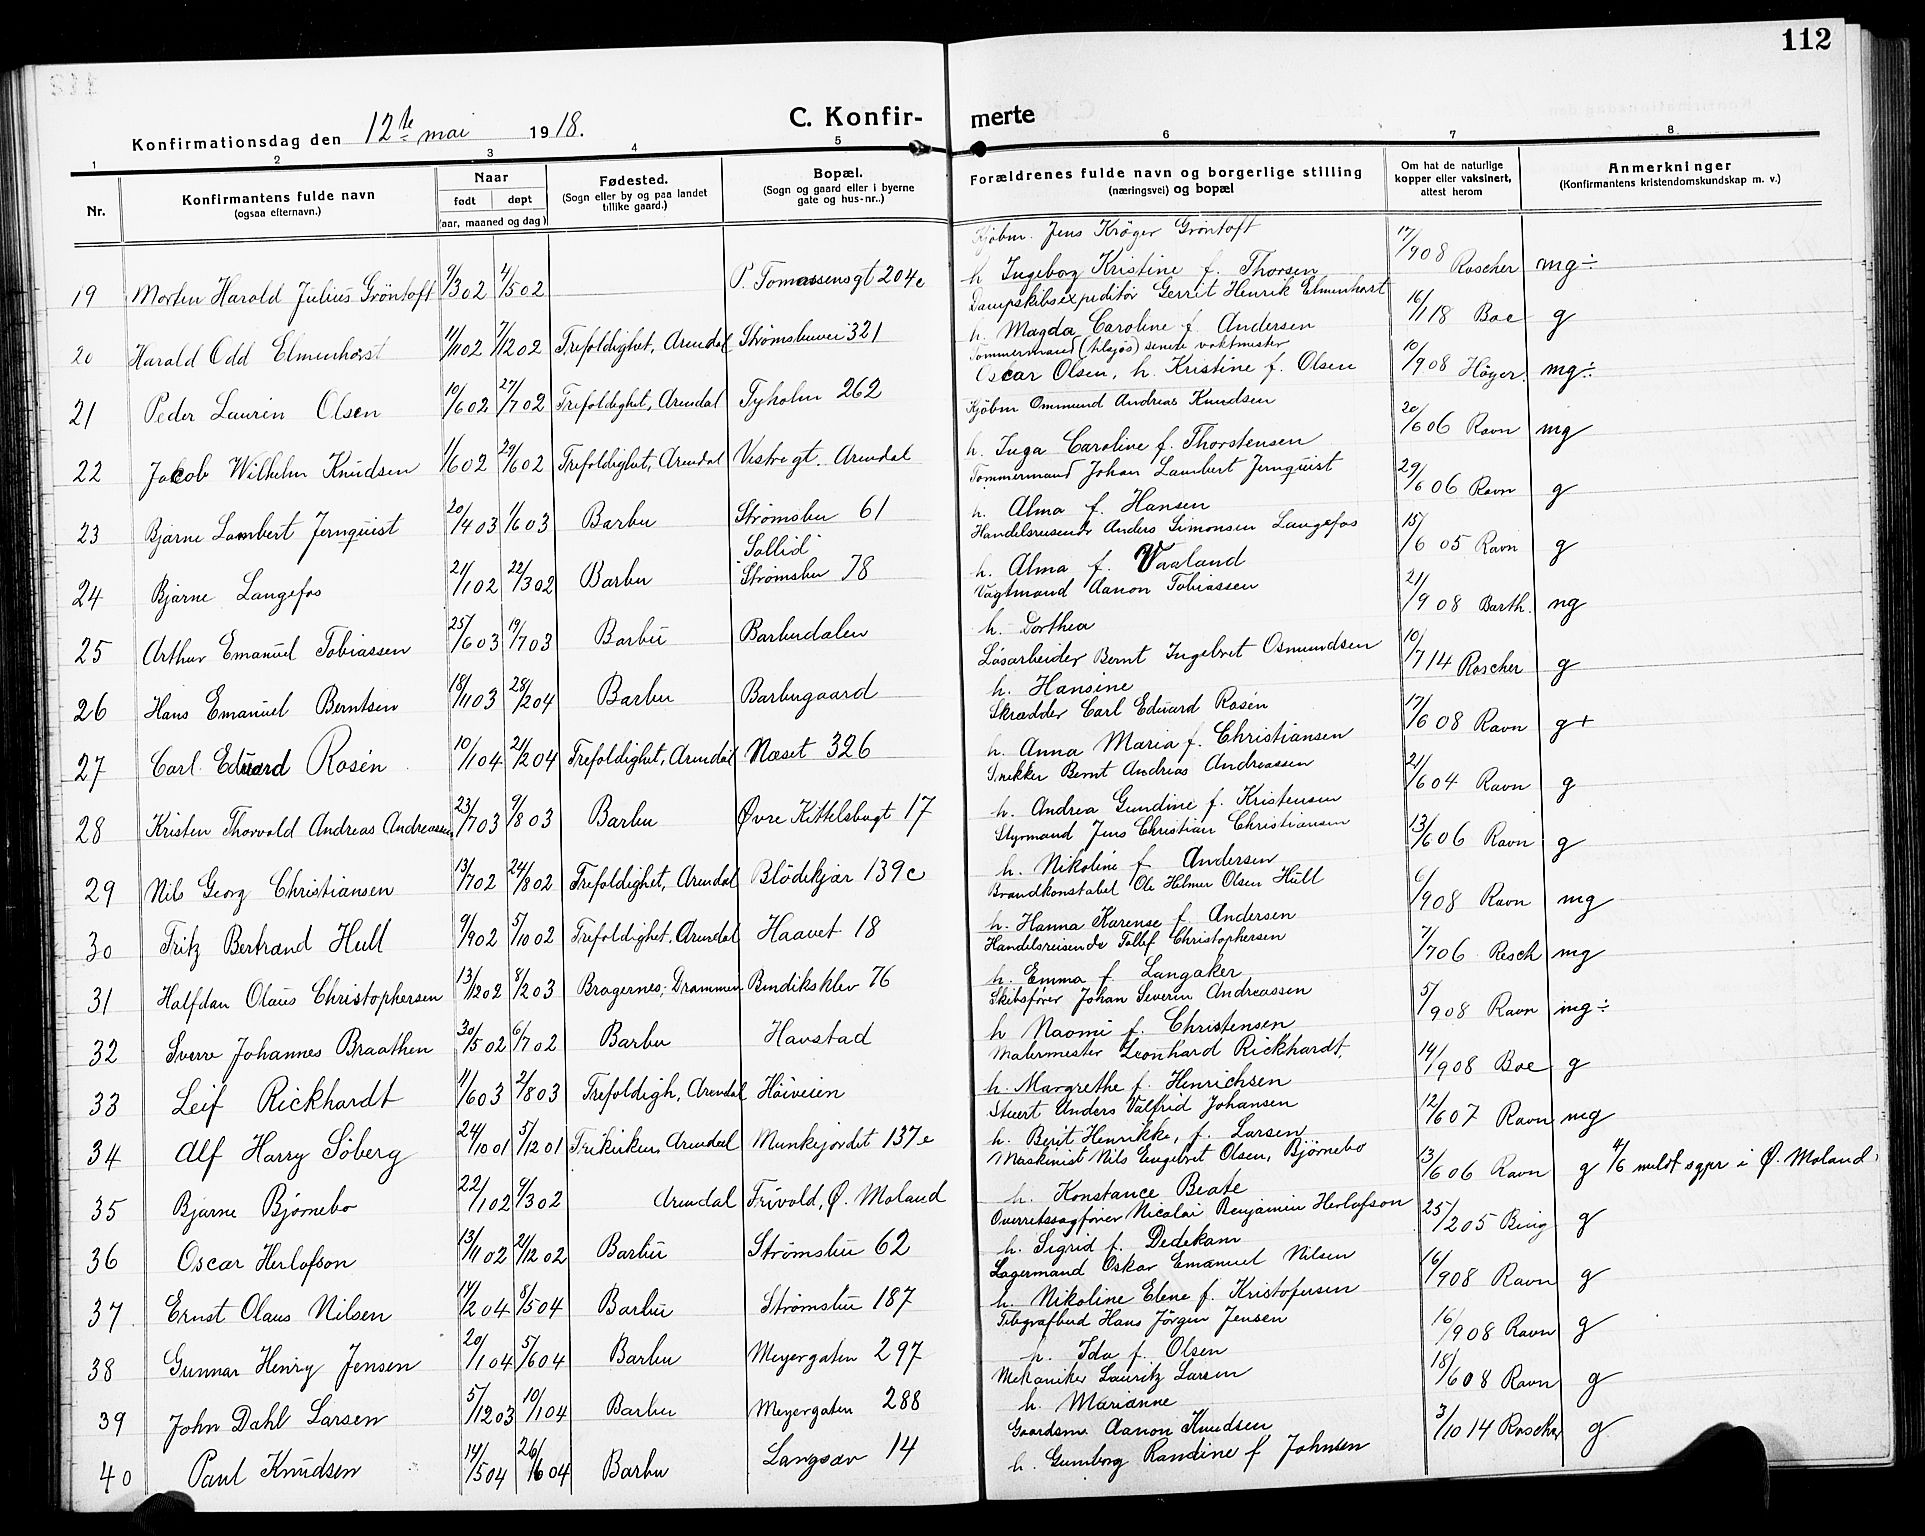 112
Konfirmationsdag den 12te mai 1918.
C. Konfir-
merte
1 2 3 4 5 6 7 8
Nr.
Konfirmantens fulde navn
(ogsaa efternavn.)
Naar
født døpt
(aar, maaned og dag)
Fødested.
(Sogn eller by og paa landet
tillike gaard.)
Bopæl.
(Sogn og gaard eller i byerne
gate og hus-nr..)
Forældrenes fulde navn og borgerlige stilling
(næringsvei) og bopæl
Om hat de naturlige
kopper eller vaksinert,
attest herom
Anmerkninger
(Konfirmantens kristendomskundskap m. v.)
Kjøbm. Jens Krøger Grøntoft
19 Morten Harald Julius Grøntoft 9/3 02 4/5 02 P. Tomassensgt 204c h. Ingeborg Kristine f. Thorsen 17/9 08 Roscher mg÷
Dampskibsexpeditør Gerrit Henrik Elmenhorst
20 Harald Odd Elmenhorst 11/11 02 7/12 02 Trefoldighet, Arendal Strømsbuvei 321 h. Magda Caroline f. Andersen 16/1 18 Boe g
Tommermand (tilsjøs) senere vaktmester
21 Peder Laurin Olsen 10/6 02 27/7 02 Trefoldighet, Arendal Tyholm 262 Oscar Olsen, h. Kristine f. Olsen 10/9 08 Høyer mg÷
Kjøbm Ommund Andreas Knudsen
22 Jacob Wilhelm Knudsen 1/6 02 29/6 02 Trefoldighet, Arendal Vestregt. Arendal h. Inga Caroline f. Thorstensen 20/6 06 Ravn mg
Tommermand Johan Lambert Jernquist
23 Bjarne Lambert Jernquist 20/4 03 1/6 03 Barbu Strømsbu 61 h. Alma f. Hansen 29/6 06 Ravn g
Sollid Handelsreisende Anders Simonsen Langefos
24 Bjarne Langefos 21/1 02 22/3 02 Barbu Strømsbu 78 h. Alma f. Vaaland 15/6 05 Ravn g
Vagtmand Aanon Tobiassen
25 Arthur Emanuel Tobiassen 25/6 03 19/7 03 Barbu Barbudalen h. Dorthea 21/9 08 Barth. ng
Løsarbeider Bernt Ingebret Osmundsen
26 Hans Emanuel Berntsen 18/11 03 28/2 04 Barbu Barbugaard h. Hansine 10/7 14 Roscher g
Skrædder Carl Edvard Rosén
27 Carl Edvard Rosén 10/1 04 21/2 04 Trefoldighet, Arendal Næset 326 h. Anna Maria f. Christiansen 17/6 08 Ravn g+
Snekker Bernt Andreas Andreassen
28 Kristen Thorvald Andreas Andreassen 23/7 03 9/8 03 Barbu Øvre Kittelsbugt 17 h. Andrea Gundine f. Kristensen 21/6 04 Ravn g
Styrmand Jens Christian Christiansen
29 Nils Georg Christiansen 13/7 02 24/8 02 Trefoldighet, Arendal Blödekjær 139c h. Nikoline f Andersen 13/6 06 Ravn g
Brandkonstabel Ole Helmer Olsen Hull
30 Fritz Bertrand Hull 9/9 02 5/10 02 Trefoldighet, Arendal Haavet 18 h. Hanna Karense f. Andersen 6/9 08 Ravn mg
Handelsreisende Tollef Christophersen
31 Halfdan Olaus Christophersen 13/12 02 8/2 03 Bragernes, Drammen Bendiksklev 76 h. Emma f. Langaker 7/7 06 Resch mg
Skibsfører Johan Severin Andreassen
32 Sverre Johannes Braathen 30/5 02 6/7 02 Barbu Havstad h Naomi f. Christensen 5/9 08 Ravn mg÷
Malermester Leonhard Rickhardt
33 Leif Rickhardt 11/6 03 2/8 03 Trefoldigh, Arendal Høiveien h. Margrethe f. Henrichsen 14/9 08 Boe g
Stuert Anders Valfrid Johansen
34 Alf Harry Söberg 24/10 01 5/12 01 Frikirken, Arendal Munkejordet 137e h. Berit Henrikke, f. Larsen 12/6 07 Ravn mg
Maskinist Nils Engebret Olsen, Bjørnebo
35 Bjarne Bjørnebo 22/1 02 9/3 02 Arendal Frivold, Ø. Moland h. Konstance Beate 13/6 06 Ravn g 14/6 meldt sgpr i Ø. Moland.
Overretssagfører Nicolai Benjamin Herlofson
36 Oscar Herlofson 13/11 02 21/12 02 Barbu Strømsbu 62 h. Sigrid f. Dedekam 25/2 05 Bing g
Lagermand Oskar Emanuel Nilsen
37 Ernst Olaus Nilsen 14/2 04 8/5 04 Barbu Strømsbu 187 h. Nikoline Elene f. Kristofersen 16/9 08 Ravn g
Telegrafbud Hans Jørgen Jensen
38 Gunnar Henry Jensen 20/1 04 5/6 04 Barbu Meyergaten 297 h. Ida f. Olsen 16/9 08 Ravn g
Mekaniker Lauritz Larsen
39 John Dahl Larsen 5/12 03 10/1 04 Barbu Meyergaten 288 h. Marianne 18/6 08 Ravn g
Gaardsm. Aanon Knudsen
40 Paul Knudsen 14/5 04 26/6 04 Barbu Langsæv 14 h. Gumborg Randine f Johnsen 3/10 14 Roscher g